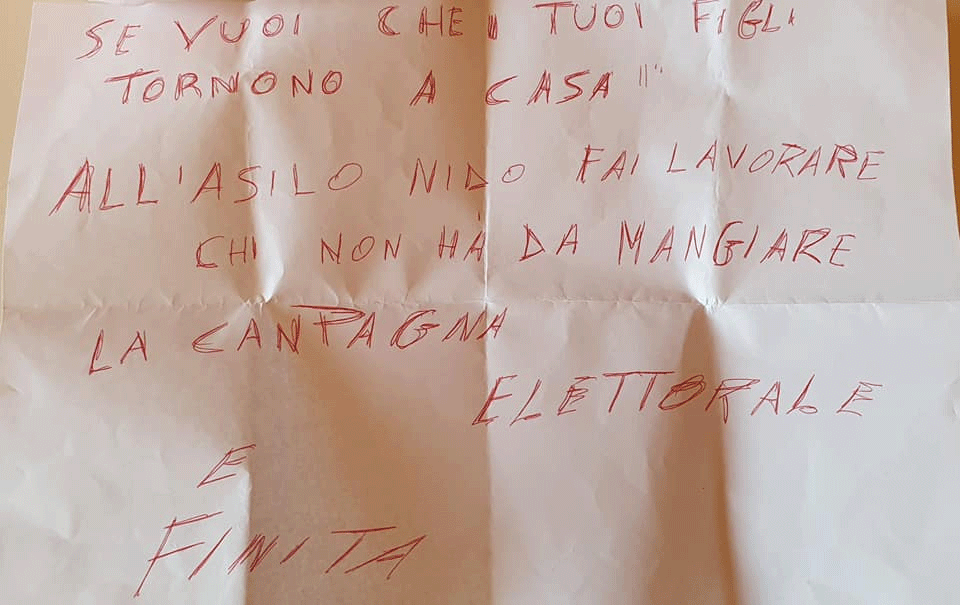 SE VUOI CHE I TUOI FIGLI
TORNONO A CASA "
ALL'ASILO NIDO FAI LAVORARE
CHI NON HÀ DA MANGIARE
LA CANPAGNA
ELETTORALE
E
FINITA